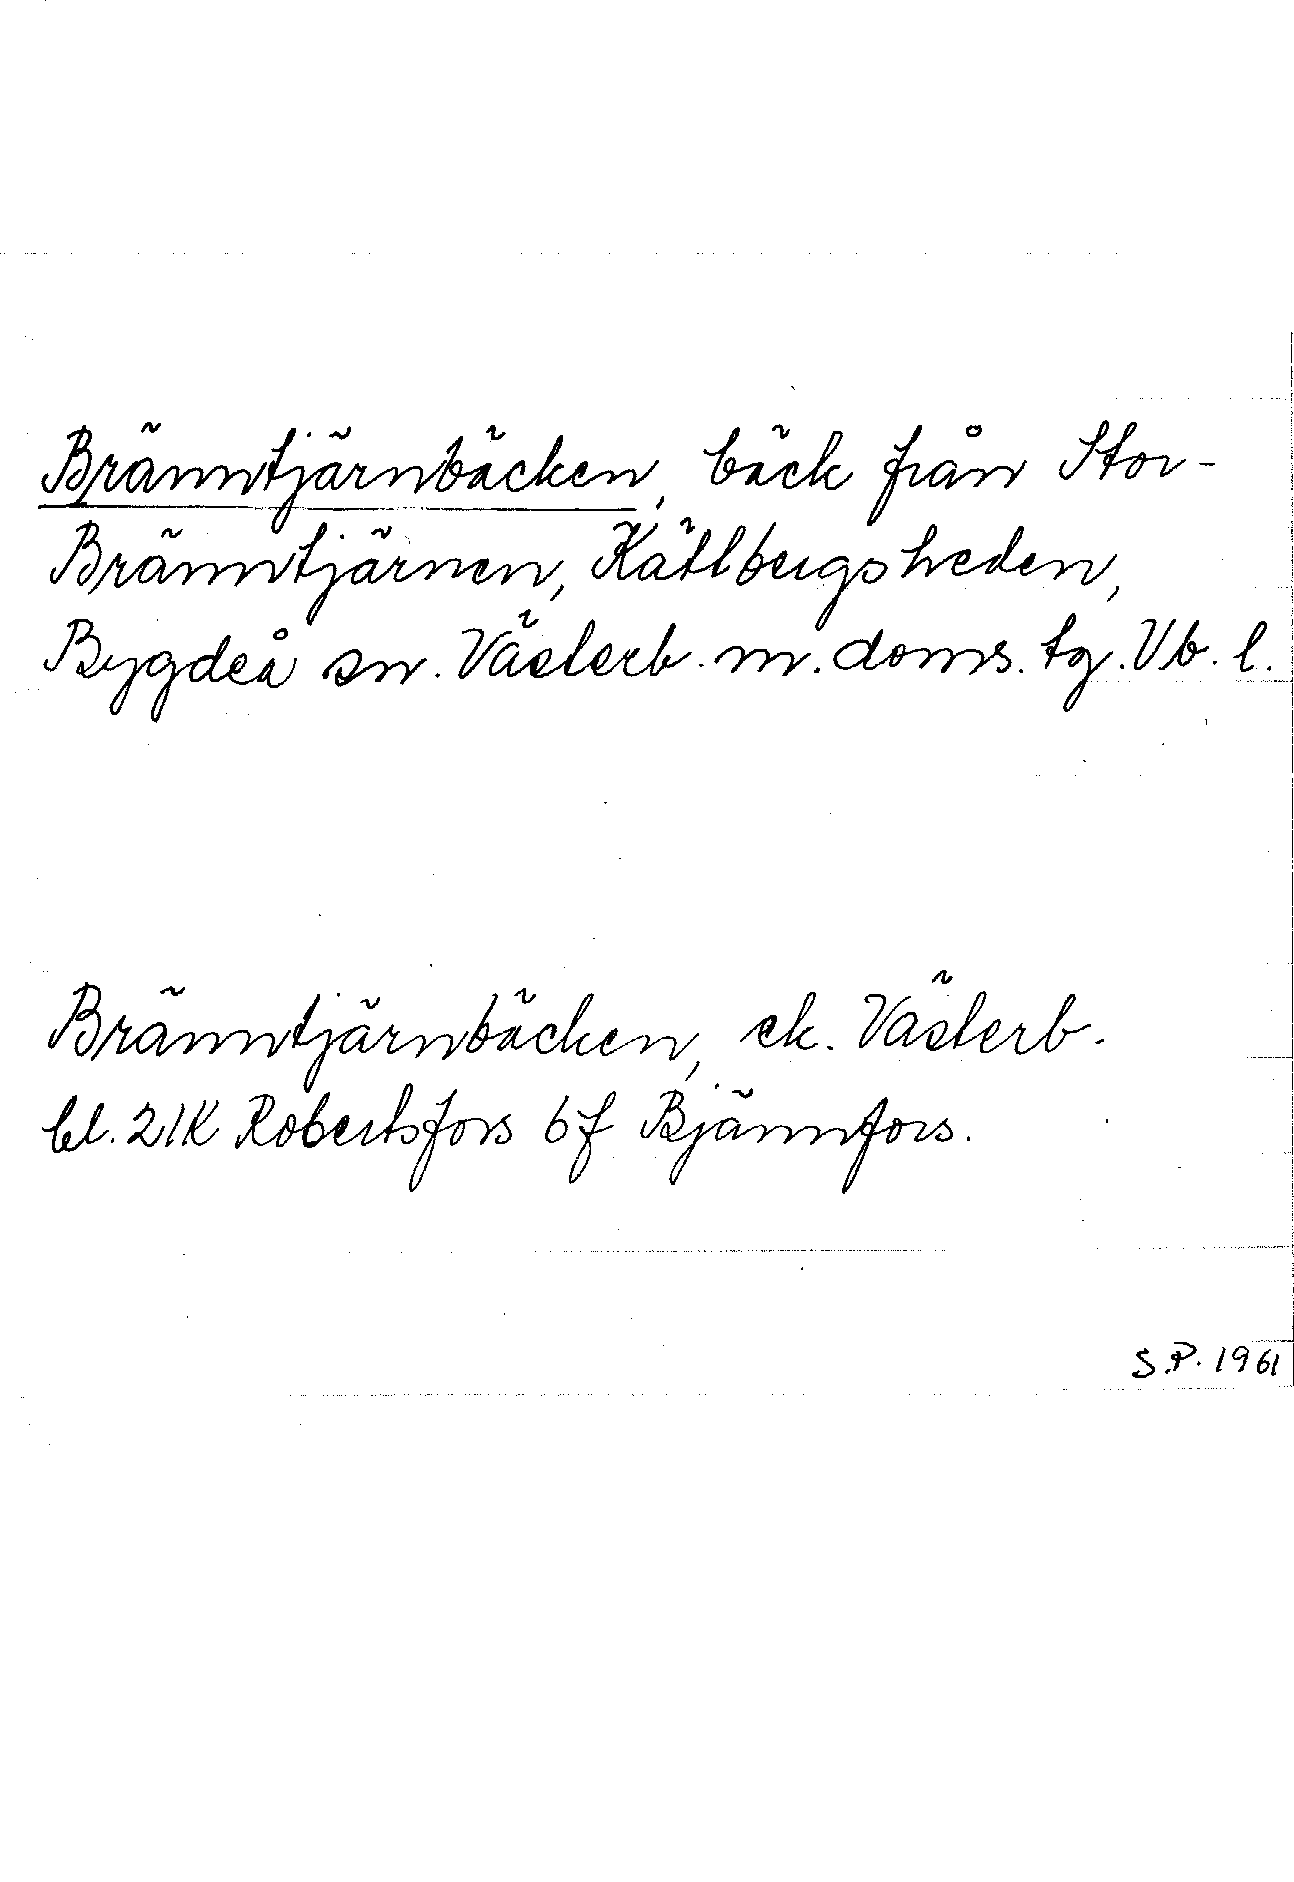 Bränntjärnbäcken, bäck från Stor-
Bränntjärnen, Kätlbergsheden,
Bygdeå sn. Västerb. m. doms. tg. Vb. l.
Bränntjärnbäcken, ek. Västerb.
bl. 21K Robertsfors 6f Bjännfors.
S.P. 1961